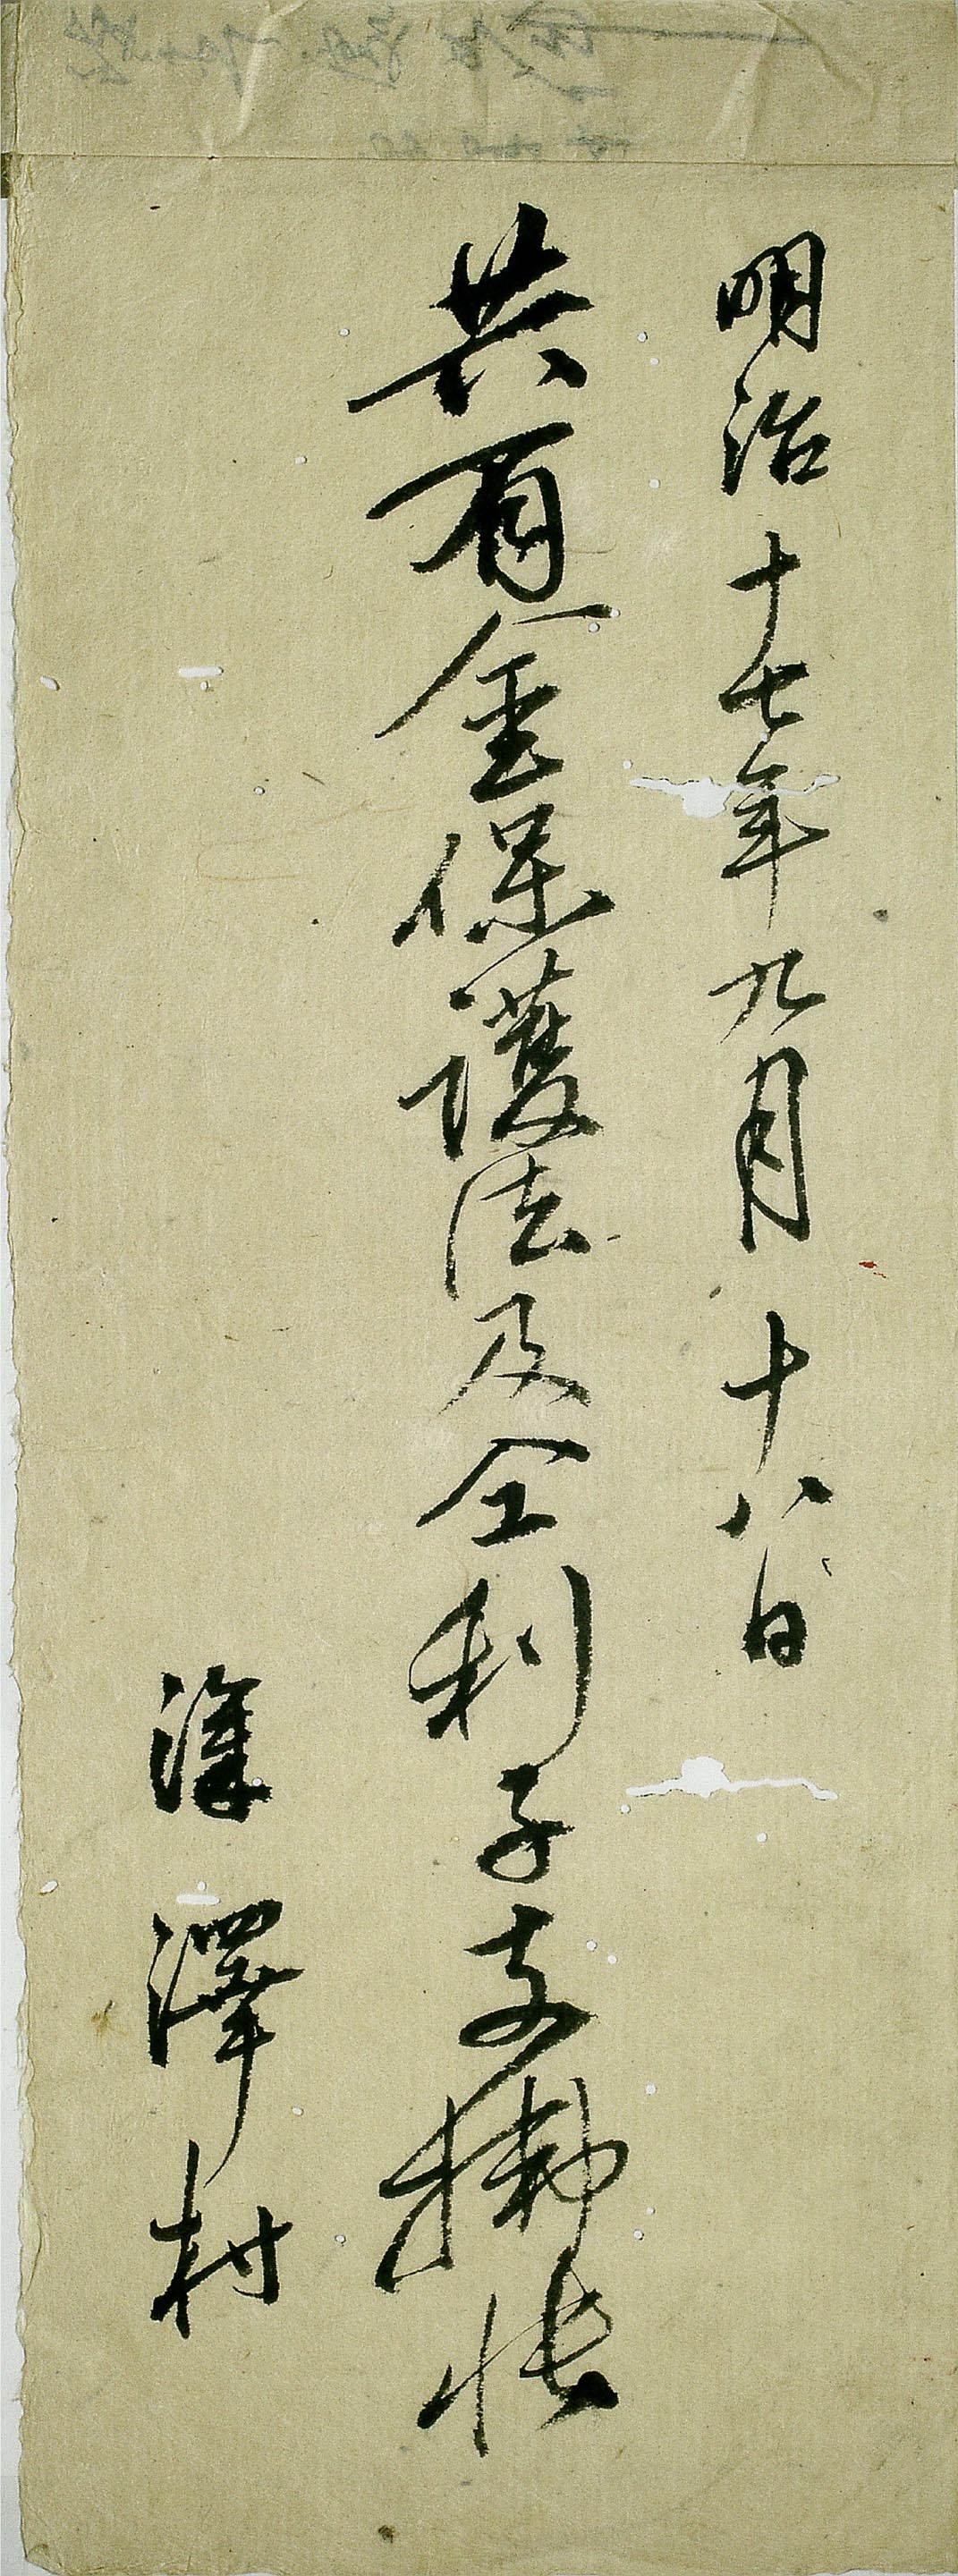 明治十七年九月十八日
共有金保護法及仝利子支帳
深澤村